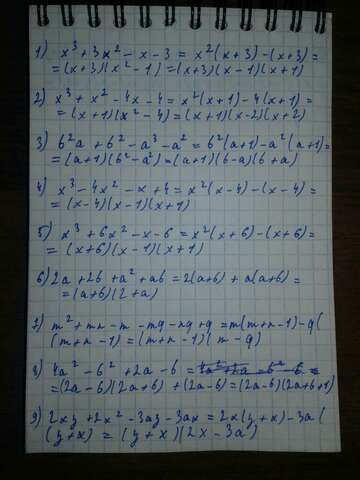 1) x³+3x²-x-3 = x²(x+3)-(x+3)=
=(x+3)(x²-1)=(x+3)(x-1)(x+1)
2) x³+x²-4x-4=x²(x+1)-4(x+1)=
=(x+1)(x²-4)=(x+1)(x-2)(x+2)
3) b²a+b²-a³-a²=b²(a+1)-a²(a+1)=
=(a+1)(b²-a²)=(a+1)(b-a)(b+a)
4) x³-4x²-x+4=x²(x-4)-(x-4)=
=(x-4)(x-1)(x+1)
5) x³+6x²-x-6=x²(x+6)-(x+6)=
=(x+6)(x-1)(x+1)
6) 2a+2b+a²+ab=2(a+b)+a(a+b)=
=(a+b)(2+a)
7) m²+mn-m-mq-nq+q=m(m+n-1)-q(
(m+n-1)=(m+n-1)(m-q)
8) 4a²-b²+2a-b=
=(2a-b)(2a+b)+(2a-b)=(2a-b)(2a+b+1)
9) 2xy+2x²-3ay-3ax=2x(y+x)-3a(
(y+x)=(y+x)(2x-3a)